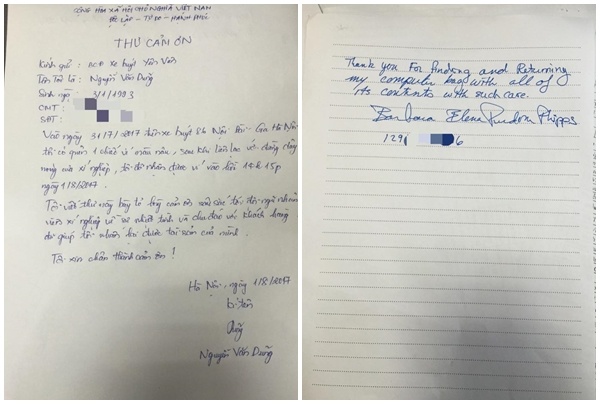 CỘNG HÒA XÃ HỘI CHỦ NGHĨA VIỆT NAM
ĐỘC LẬP - TỰ DO - HẠNH PHÚC
THƯ CẢM ƠN
Kính gửi : xe buýt Yên Viên
Tên Tôi là : Nguyễn Văn Dũng
Sinh ngày : 3/1/1983
CMT :
SĐT :
Vào ngày 31/7/2017 trên xe buýt 86 Nội Bài - Ga Hà Nội
tôi có quên 1 chiếc ví màu nâu, sau khi liên lạc với đường dây
nóng của xí nghiệp, tôi đã nhận được ví vào hồi 15h15p
ngày 1/8/2017.
Tôi viết thư này bày tỏ lòng cảm ơn sâu sắc tới đội ngũ nhân
viên xí nghiệp về sự nhiệt tình và chu đáo với khách hàng
đã giúp tôi nhận lại được tài sản của mình.
Tôi xin chân thành cảm ơn !
Hà Nội, ngày 1/8/2017
Dũng
Nguyễn Văn Dũng
Thank you For finding and Returning
my computer bag with all of
its contents with such care.
Barbara Elena Phipps
129 6